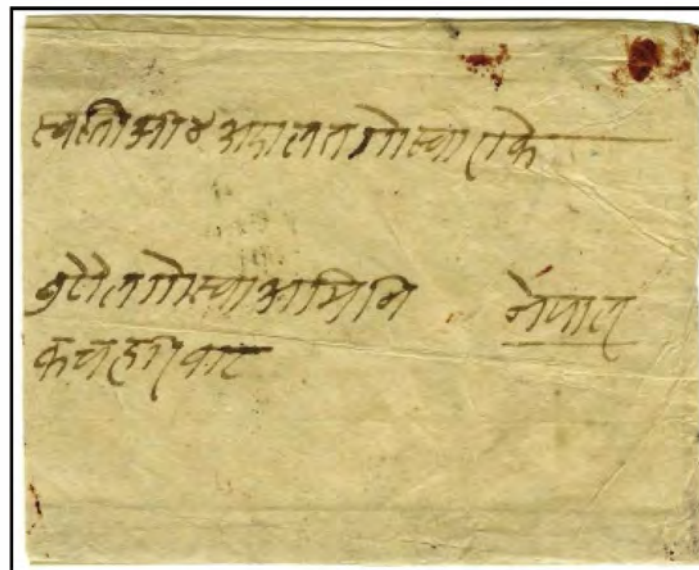 स्वस्ती श्री ४ अदालत गोस्वाराके
बुटौल गोस्वारा अमिनि नेपाल
कचहरीबाट